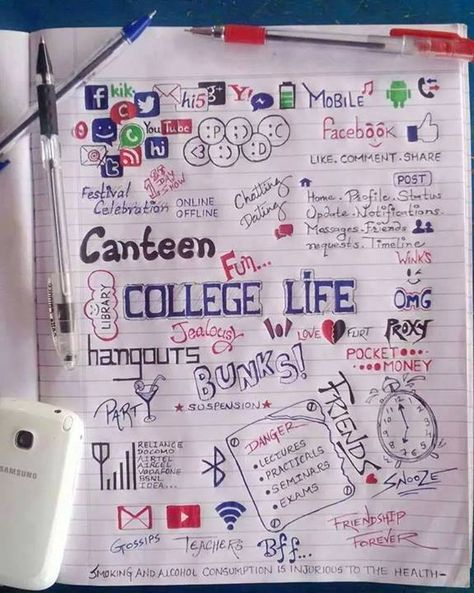 kik
hi5
g+
Y!
MOBILE
You Tube
hi
:P :) :C
:O :D
Facebook
LIKE. COMMENT. SHARE
Festival
Celebration
ONLINE
OFFLINE
Chatting
Dating
POST
Home. Profile. Status
Update. Notifications.
Messages. Friends
requests. Timeline
Canteen
Fun...
WINKS
LIBRARY
COLLEGE LIFE
OMG
Jealousy
LOVE FLIRT
PROXY
hangouts
BUNKS!
POCKET
MONEY
PARTY
SUSPENSION
FRIENDS
DANGER
LECTURES
PRACTICALS
SEMINARS
EXAMS
RELIANCE
DOCOMO
AIRTEL
AIRCEL
VODAFONE
BSNL
IDEA...
SNOOZE
SAMSUNG
GOSSIPS
TEACHERS
Bff...
FRIENDSHIP
FOREVER
SMOKING AND ALCOHOL CONSUMPTION IS INJURIOUS TO THE HEALTH-